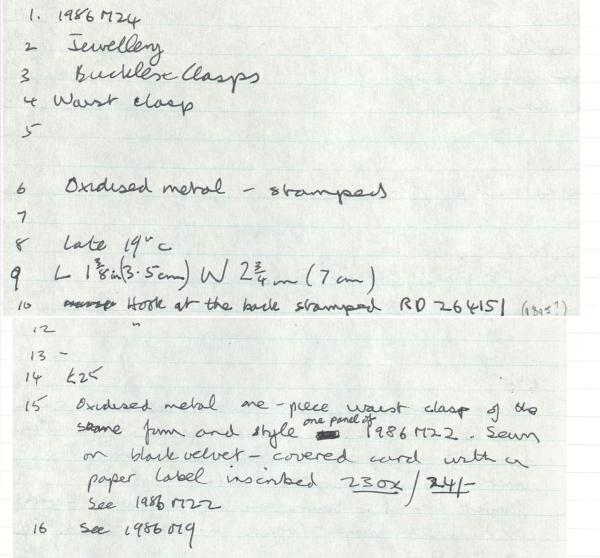 1. 1986 M24
2 Jewellery
3 Buckles & Clasps
4 Waist clasp
5
6 Oxidised metal - stamped
7
8 Late 19th c
9 L 1 3/8 in (3.5cm) W 2 3/4 in (7cm)
10 Hook at the back stamped RD 264151 (1895?)
12 "
13 -
14 £25
15 Oxidised metal one-piece waist clasp of the
same form and style one panel of 1986 M22. Sewn
on black velvet-covered card with a
paper label inscribed 230x/24/-
See 1986 M22
16 See 1986 M9